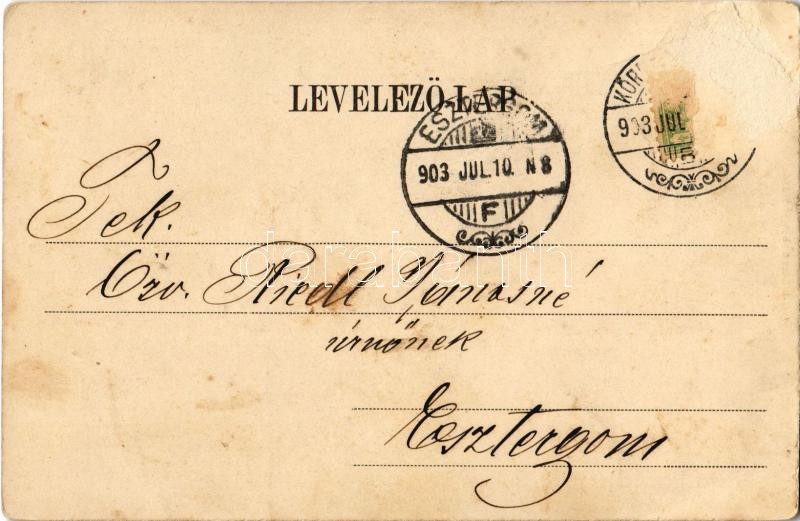 LEVELEZŐ-LAP
ESZTERGOM
903 JUL.10. N8
F
KÖR
903 JUL
Tek.
Özv. Riedl Jánosné
úrnőnek
Esztergom
darabanth